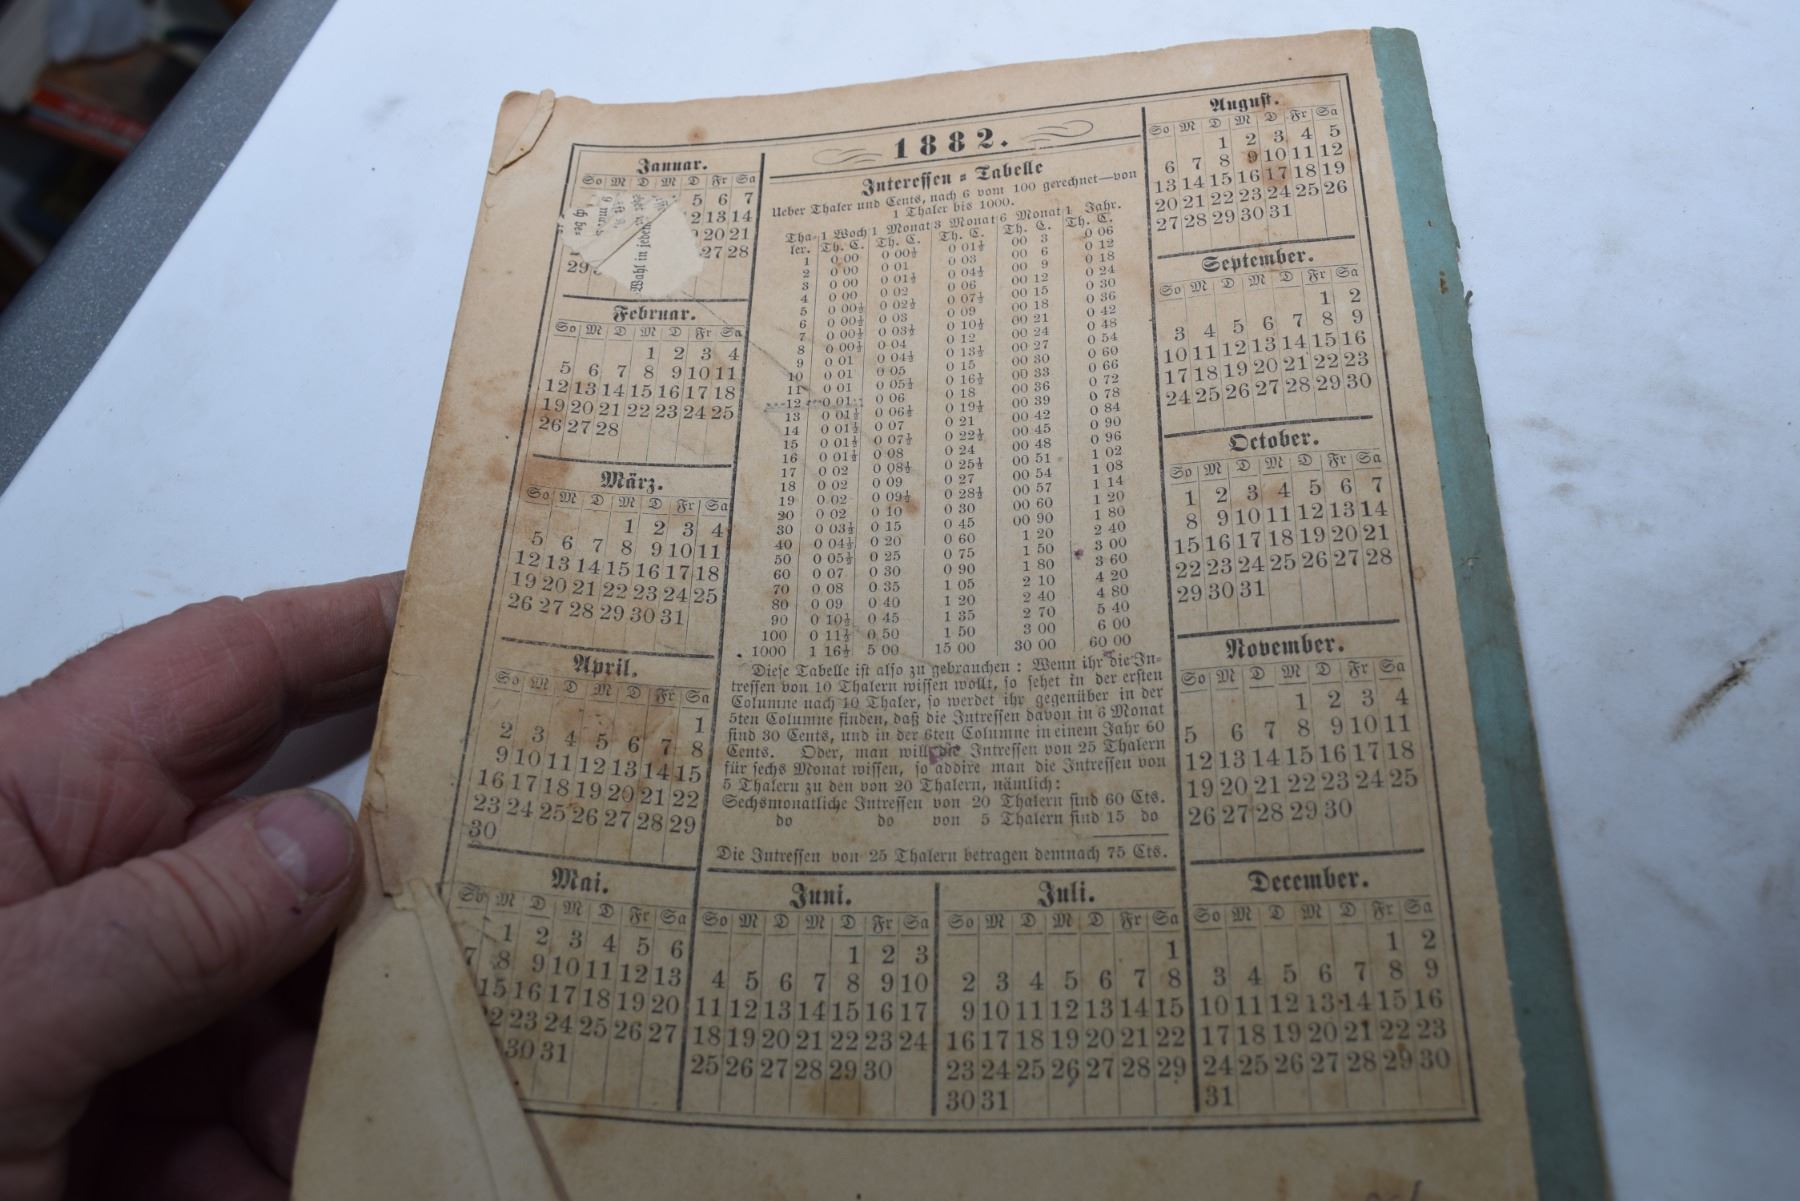 1882.
Januar.
So M D M D Fr Sa
5 6 7
12 13 14
20 21
27 28
29
Wahl in jedem
Februar.
So M D M D Fr Sa
1 2 3 4
5 6 7 8 9 10 11
12 13 14 15 16 17 18
19 20 21 22 23 24 25
26 27 28
März.
So M D M D Fr Sa
1 2 3 4
5 6 7 8 9 10 11
12 13 14 15 16 17 18
19 20 21 22 23 24 25
26 27 28 29 30 31
April.
So M D M D Fr Sa
1
2 3 4 5 6 7 8
9 10 11 12 13 14 15
16 17 18 19 20 21 22
23 24 25 26 27 28 29
30
Mai.
So M D M D Fr Sa
1 2 3 4 5 6
7 8 9 10 11 12 13
15 16 17 18 19 20
22 23 24 25 26 27
30 31
Interessen=Tabelle
Ueber Thaler und Cents, nach 6 vom 100 gerechnet—von
1 Thaler bis 1000.
Tha- 1 Woch 1 Monat 3 Monat 6 Monat 1 Jahr.
ler. Th. C. Th. C. Th. C. Th. C. Th. C.
1 0 00 0 00½ 0 01½ 00 3 0 06
2 0 00 0 01 0 03 00 6 0 12
3 0 00 0 01½ 0 04½ 00 9 0 18
4 0 00 0 02 0 06 00 12 0 24
5 0 00½ 0 02½ 0 07½ 00 15 0 30
6 0 00½ 0 03 0 09 00 18 0 36
7 0 00½ 0 03½ 0 10½ 00 21 0 42
8 0 00½ 0 04 0 12 00 24 0 48
9 0 01 0 04½ 0 13½ 00 27 0 54
10 0 01 0 05 0 15 00 30 0 60
11 0 01 0 05½ 0 16½ 00 33 0 66
12 0 01 0 06 0 18 00 36 0 72
13 0 01½ 0 06½ 0 19½ 00 39 0 78
14 0 01½ 0 07 0 21 00 42 0 84
15 0 01½ 0 07½ 0 22½ 00 45 0 90
16 0 01½ 0 08 0 24 00 48 0 96
17 0 02 0 08½ 0 25½ 00 51 1 02
18 0 02 0 09 0 27 00 54 1 08
19 0 02 0 09½ 0 28½ 00 57 1 14
20 0 02 0 10 0 30 00 60 1 20
30 0 03½ 0 15 0 45 00 90 1 80
40 0 04½ 0 20 0 60 1 20 2 40
50 0 05½ 0 25 0 75 1 50 3 00
60 0 07 0 30 0 90 1 80 3 60
70 0 08 0 35 1 05 2 10 4 20
80 0 09 0 40 1 20 2 40 4 80
90 0 10½ 0 45 1 35 2 70 5 40
100 0 11½ 0 50 1 50 3 00 6 00
1000 1 16½ 5 00 15 00 30 00 60 00
Diese Tabelle ist also zu gebrauchen: Wenn ihr die In-
tressen von 10 Thalern wissen wollt, so sehet in der ersten
Columne nach 10 Thaler, so werdet ihr gegenüber in der
5ten Columne finden, daß die Intressen davon in 6 Monat
sind 30 Cents, und in der 6ten Columne in einem Jahr 60
Cents. Oder, man will die Intressen von 25 Thalern
für sechs Monat wissen, so addire man die Intressen von
5 Thalern zu den von 20 Thalern, nämlich:
Sechsmonatliche Intressen von 20 Thalern sind 60 Cts.
do do von 5 Thalern sind 15 do
Die Intressen von 25 Thalern betragen demnach 75 Cts.
Juni.
So M D M D Fr Sa
1 2 3
4 5 6 7 8 9 10
11 12 13 14 15 16 17
18 19 20 21 22 23 24
25 26 27 28 29 30
Juli.
So M D M D Fr Sa
1
2 3 4 5 6 7 8
9 10 11 12 13 14 15
16 17 18 19 20 21 22
23 24 25 26 27 28 29
30 31
August.
So M D M D Fr Sa
1 2 3 4 5
6 7 8 9 10 11 12
13 14 15 16 17 18 19
20 21 22 23 24 25 26
27 28 29 30 31
September.
So M D M D Fr Sa
1 2
3 4 5 6 7 8 9
10 11 12 13 14 15 16
17 18 19 20 21 22 23
24 25 26 27 28 29 30
October.
So M D M D Fr Sa
1 2 3 4 5 6 7
8 9 10 11 12 13 14
15 16 17 18 19 20 21
22 23 24 25 26 27 28
29 30 31
November.
So M D M D Fr Sa
1 2 3 4
5 6 7 8 9 10 11
12 13 14 15 16 17 18
19 20 21 22 23 24 25
26 27 28 29 30
December.
So M D M D Fr Sa
1 2
3 4 5 6 7 8 9
10 11 12 13 14 15 16
17 18 19 20 21 22 23
24 25 26 27 28 29 30
31